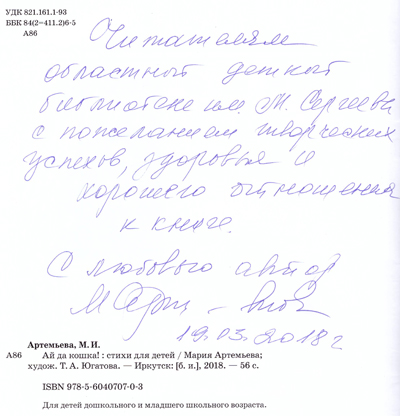 УДК 821.161.1-93
ББК 84(2=411.2)6-5
А86
Читателям
областной детской
библиотеки им. М. Сергеева
с пожеланием творческих
успехов, здоровья и
хорошего отношения
к книге.
С любовью автор
19.03.2018г
Артемьева, М. И.
А86 Ай да кошка! : стихи для детей / Мария Артемьева;
худож. Т. А. Югатова. — Иркутск: [б. и.], 2018. — 56 с.
ISBN 978-5-6040707-0-3
Для детей дошкольного и младшего школьного возраста.